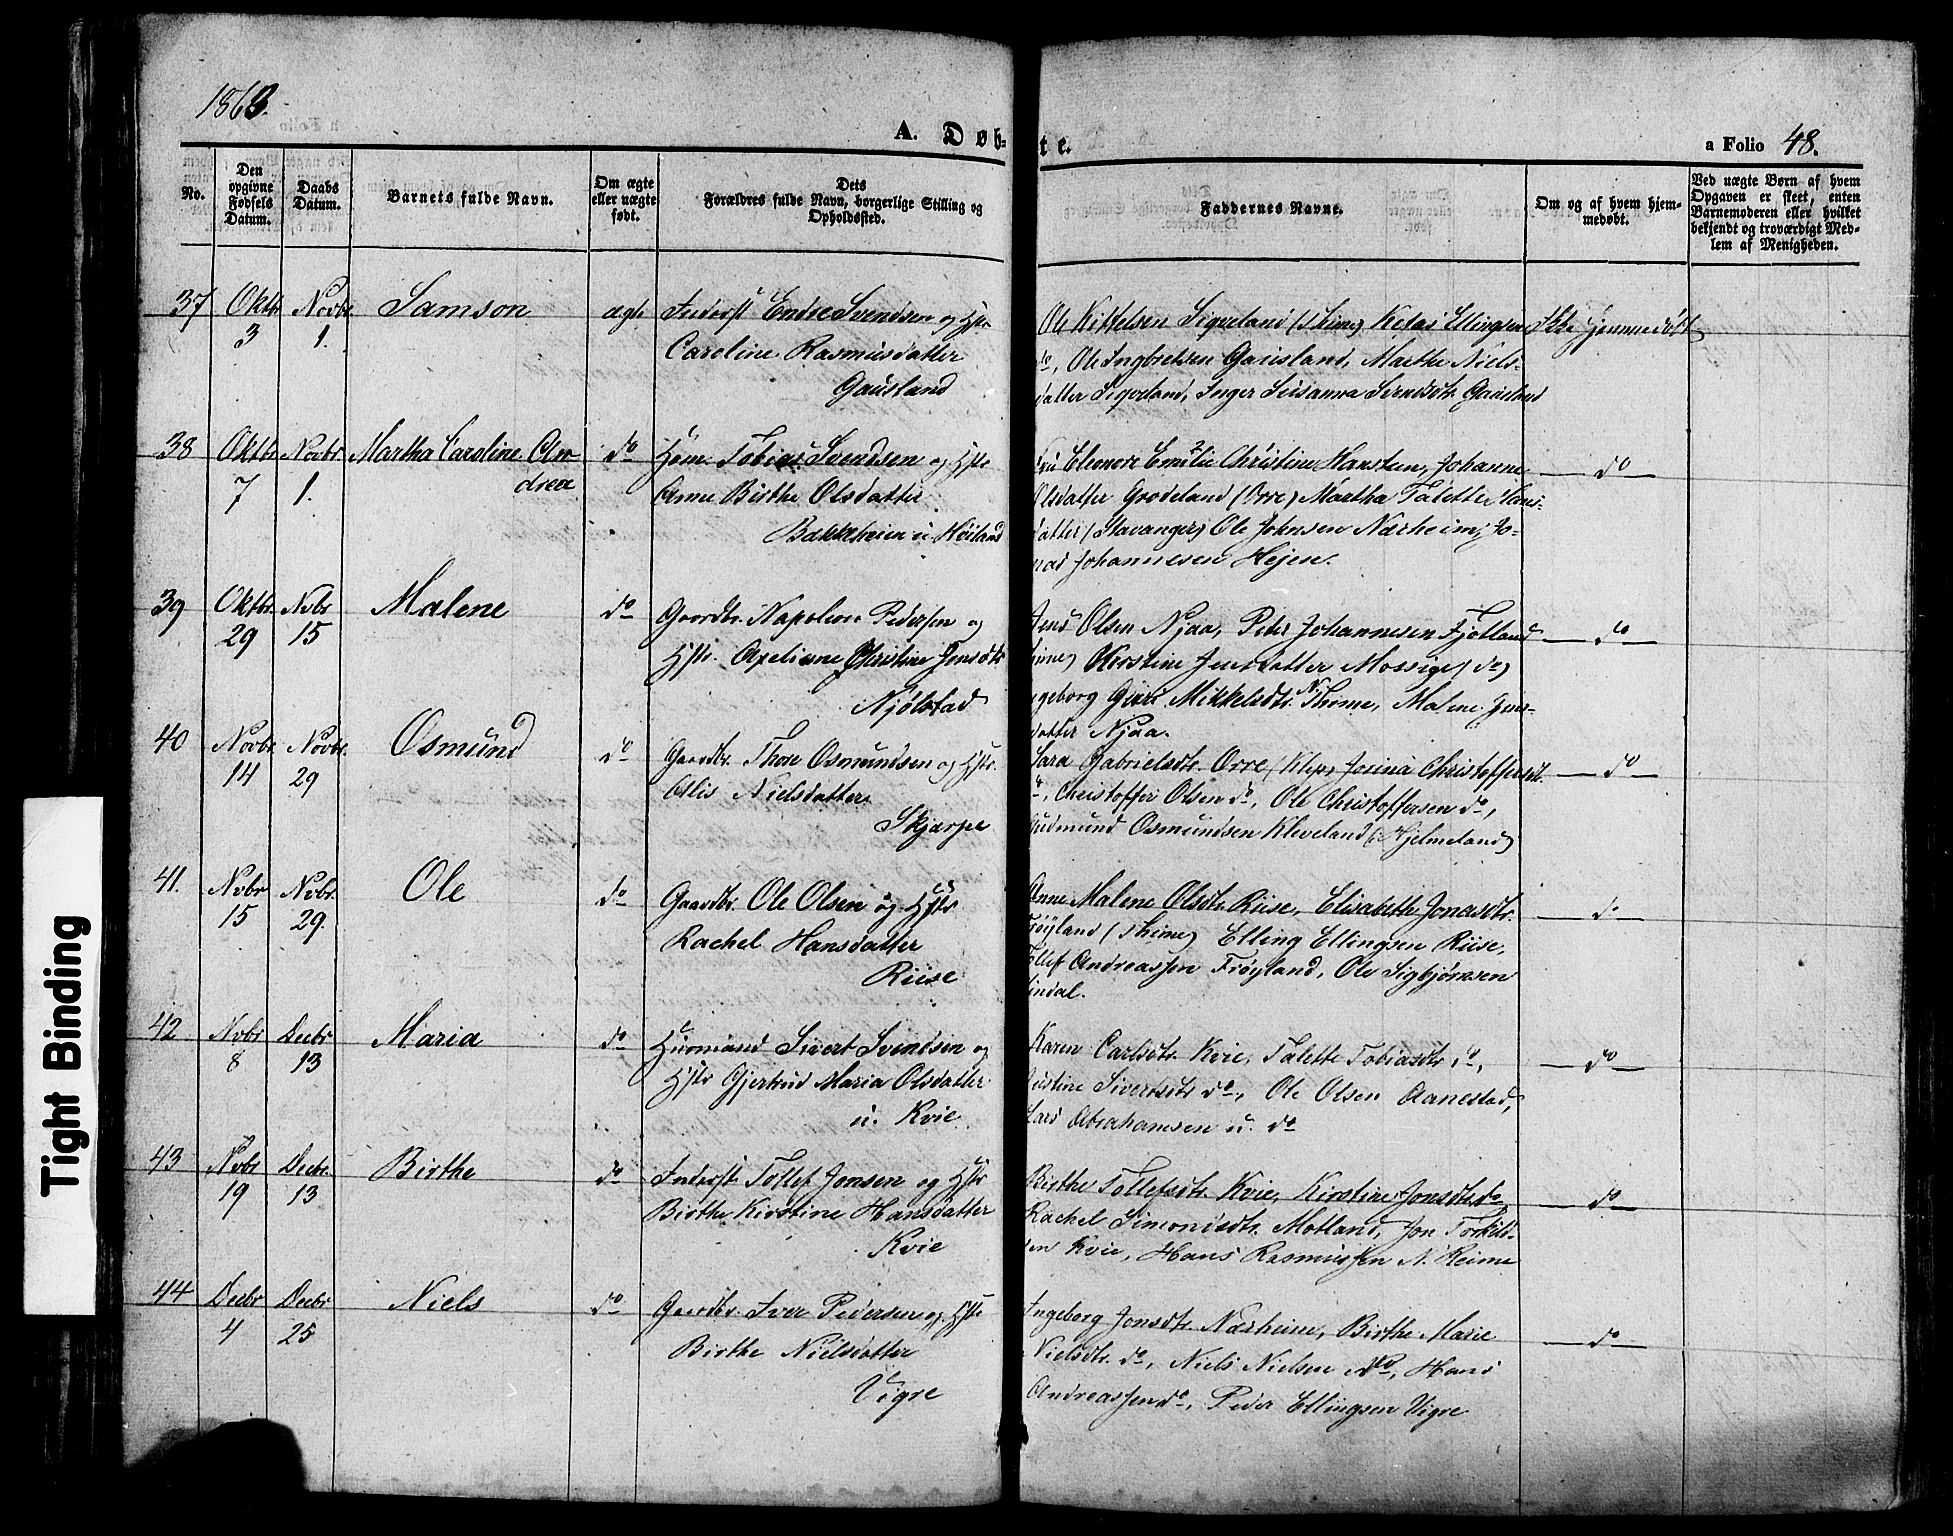 1863.
A. Døbte.
a Folio 48.
No.
Den opgivne Fødsels Datum.
Daabs Datum.
Barnets fulde Navn.
Om ægte eller uægte født.
Dets Forældres fulde Navn, borgerlige Stilling og Opholdssted.
Faddernes Navne.
Om og af hvem hjemmedøbt.
Ved uægte Børn af hvem Opgaven er skeet, enten Barnemoderen eller hvilket bekjendt og troværdigt Medlem af Menigheden.
37 Oktbr 3 Novbr. 1. Samson ægte Inderst Endre Svendsen og Hstr
Caroline Rasmusdatter
Gausland
Ole Kittelsen Sigveland (Thime) Ellingsen Ikke hjemmedøbt
do, Ole Ingbretsen Gausland, Marthe Niels-
datter Sigveland, Inger Susanna Svendsdtr. Gausland
38 Oktbr 7 Novbr. 1. Martha Caroline An-
drea do Huusm. Tobias Svendsen og Hstr
Anne Birthe Olsdatter
Bakkeheien u. Høiland
Fru Eleonore Emilie Christine Hansteen, Johanne
Olsdatter Grødeland (Orre) Martha Talette Hans-
datter (Stavanger) Ole Johnsen Nærheim, Jo-
nas Johannesen Hejen.
do
39 Oktbr. 29 Nvbr 15 Malene do Gaardbr. Napoleon Pedersen og
Hstr. Axeliane Christine Jensdtr
Njølstad
Jens Olsen Njaa, Peder Johannesen Fjotland
(Thime) Kirstine Jensdatter Mossige (do)
Ingeborg Guri Mikkelsdtr. N. Thime, Malene Jens-
datter Njaa.
do
40 Novbr. 14 Novbr. 29 Osmund do Gaardbr. Thore Osmundsen og Hstr.
Alis Nielsdatter
Skjærpe
Sara Gabrielsdtr. Orre (Klep) Jorina Christoffersdtr.
do, Christoffer Olsen do, Ole Christoffersen do,
Gudmund Osmundsen Kleveland (Hjelmeland)
do
41. Nvbr 15 Nvbr. 29. Ole do Gaardbr. Ole Olsen og Hstr
Rachel Hansdatter
Riise
Anne Malene Olsdtr. Riise, Elisabeth Jonasdtr.
Frøyland (Thime) Elling Ellingsen Riise,
Tollef Andreassen Frøyland, Ole Sigbjørnsen
Lindal.
do
42 Nvbr 8 Decbr 13 Maria do Huusmand Sivert Svendsen og
Hstr Gjertrud Maria Olsdatter
u. Kvie
Karen Carlsdtr. Kvie, Talette Tobiasdtr do,
Sivertsdtr do, Ole Olsen Aanestad,
Lars Abrahamsen u. do
do
43 Nvbr 19 Decbr. 13 Birthe do Inderst. Tollef Jonsen og Hstr
Birthe Kirstine Hansdatter
Kvie
Birthe Tollefsdtr. Kvie, Kirstine Jonsdtr do
Rachel Simonsdtr. Motland, Jon Torkild-
sen Kvie, Hans Rasmussen N. Reime
do
44 Decbr 4 Decbr 25 Niels do Gaardbr. Iver Pedersen og Hstr
Birthe Nielsdatter
Vigre
Ingeborg Jonsdtr. Nærheim, Birthe Marie
Nielsdtr. do, Niels Nielsen do, Hans
Andreassen do, Peder Ellingsen Vigre
do
Tight Binding